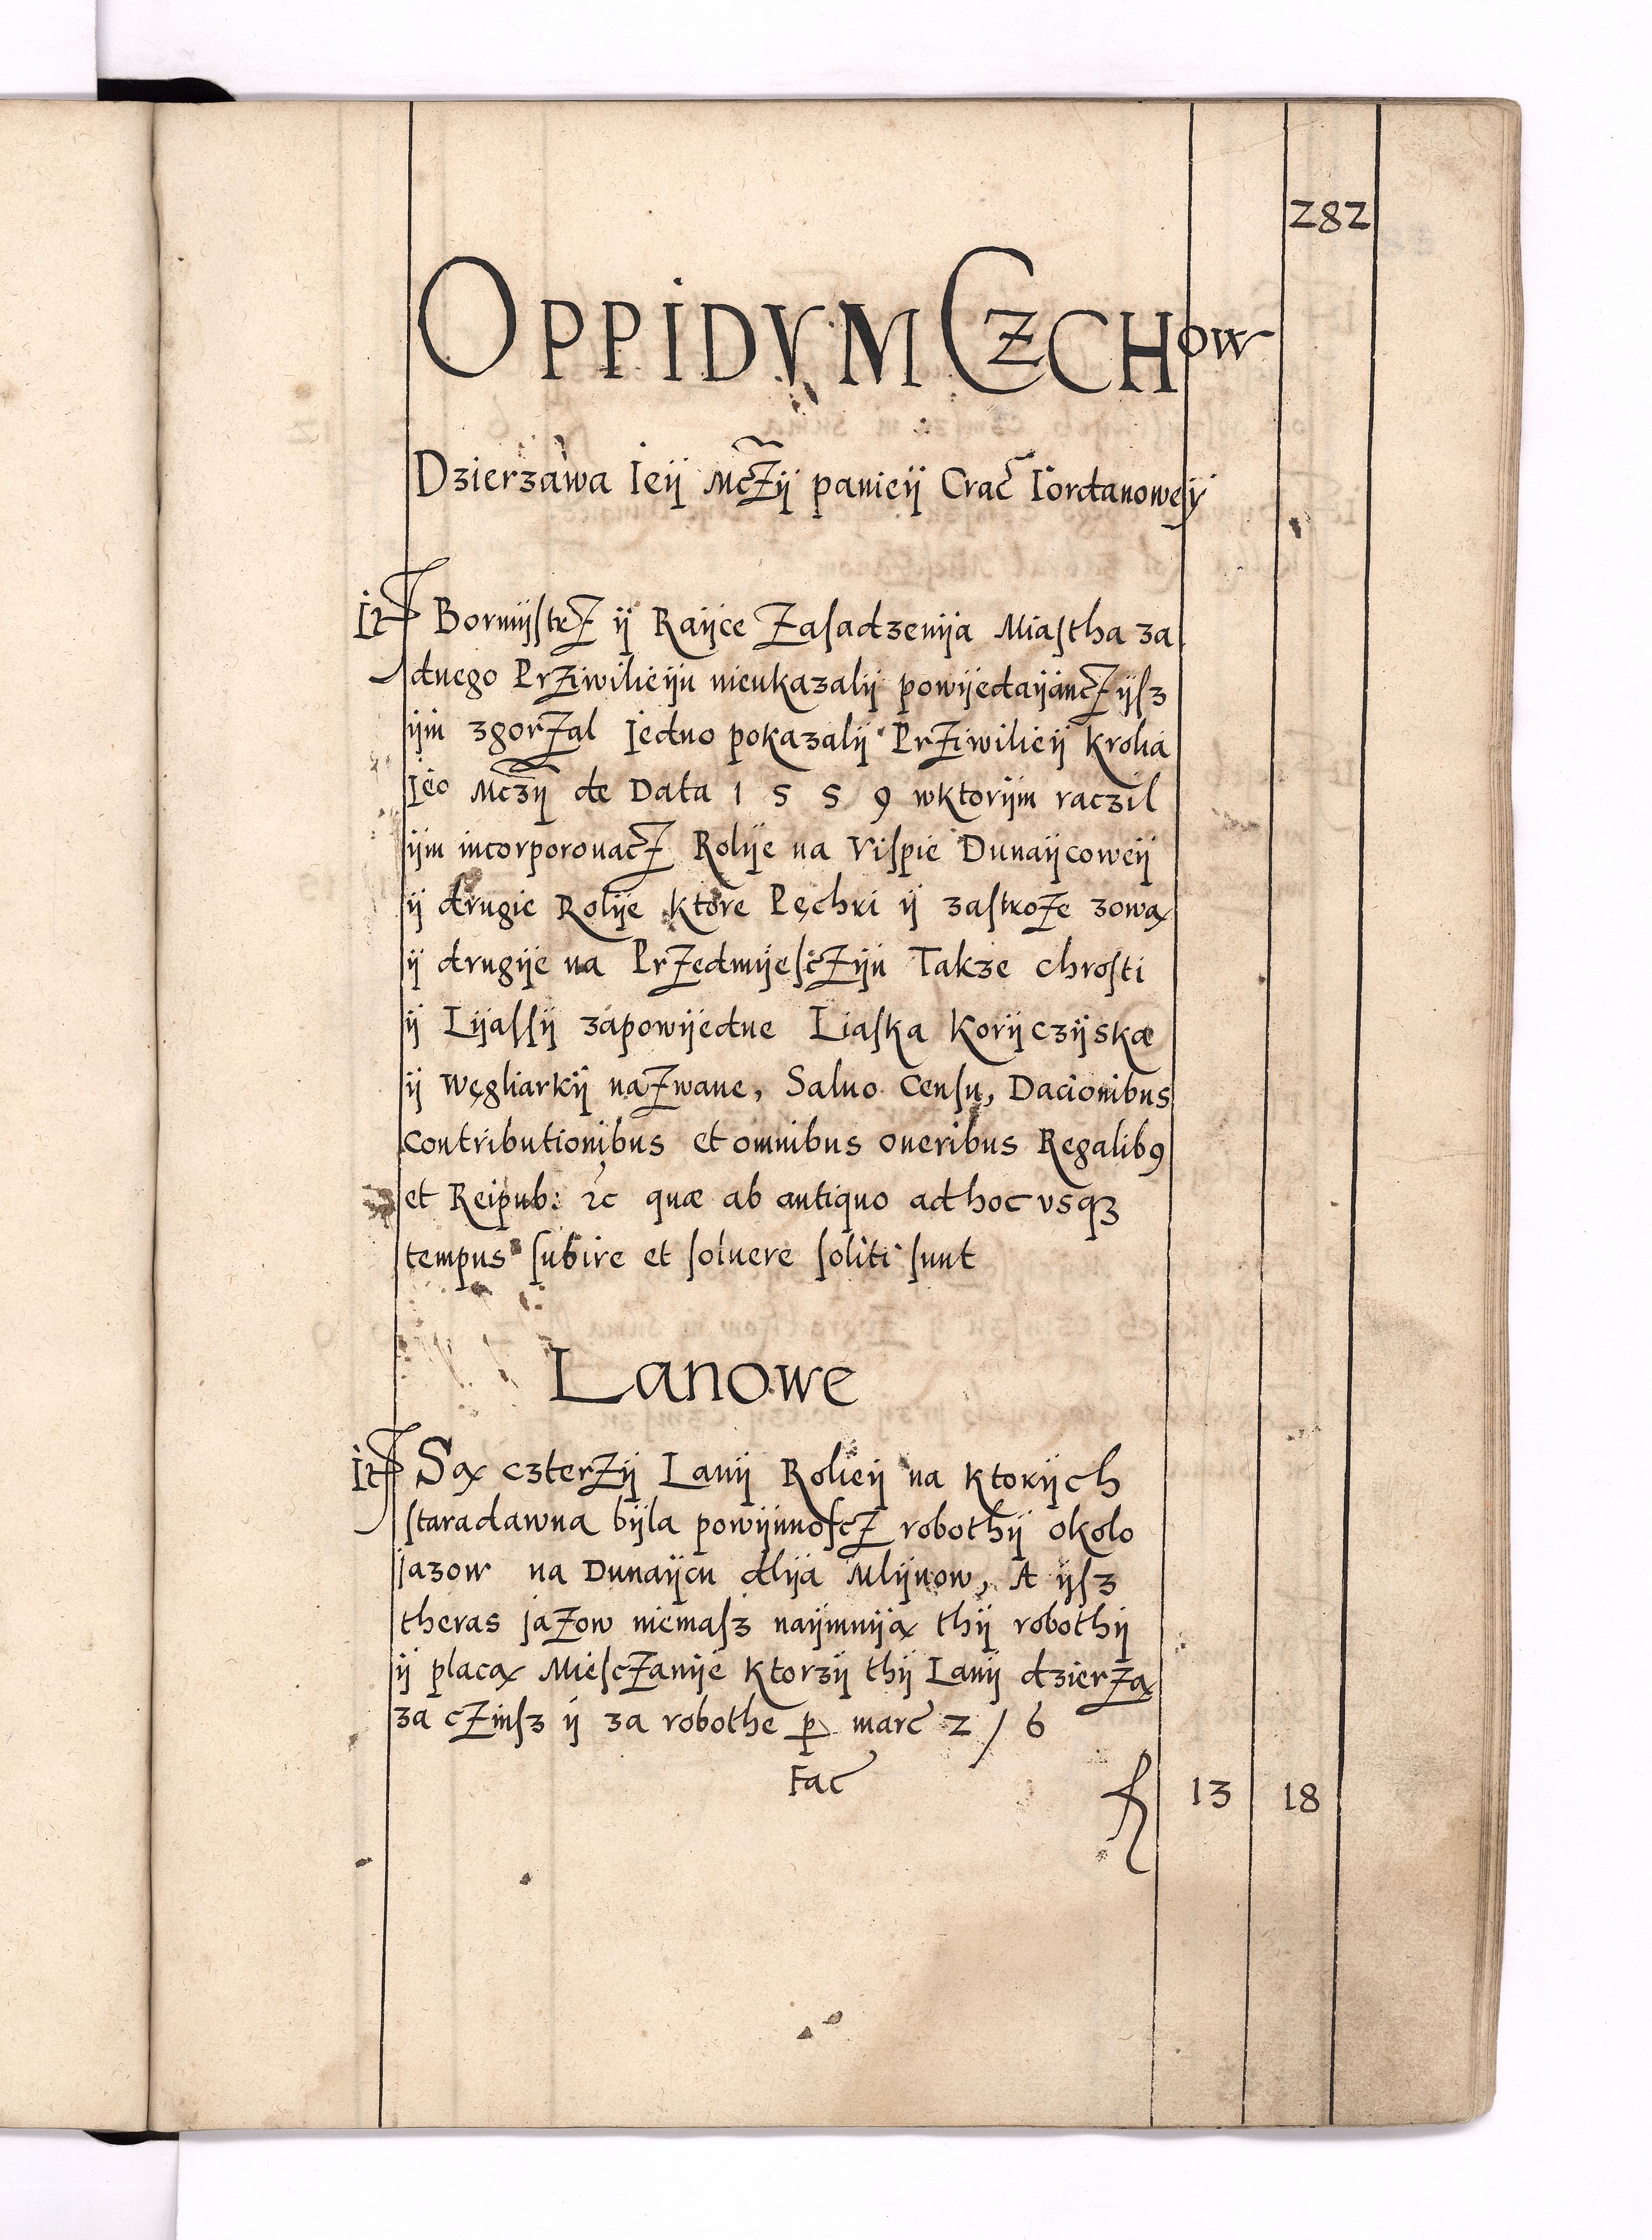 282
OPPIDVM CZCHow
Dzierzawa Ieÿ Mczÿ panieÿ Crac Iordanoweÿ
It Bormÿstrz ÿ Raÿce Zasadzenÿa Miastha za
dnego Prziwilieÿu nieukazalÿ powÿedaÿanczÿsz
ÿm zgorzal Jedno pokazalÿ Prziwilieÿ krolia
Jeo Mczÿ de Data 1 5 5 9 wktorÿm raczil
ÿm incorporouacz Rolÿe na Vispie Dunaÿcoweÿ
ÿ drugie Rolÿe ktore Pęchri ÿ zastroze zową
ÿ drugÿe na Przedmÿesczÿu Takze chrosti
ÿ Lÿassÿ zapowÿedne Liaska Korÿczÿskæ
ÿ Węgliarkÿ nazwane, Saluo Censu, Dacionibus
contributionibus et omnibus oneribus Regalibꝯ
et Reipub: ꝛc quæ ab antiquo ad hoc vsqꝫ
tempus subire et soluere soliti sunt
Lanowe
It Są czterzÿ Lanÿ Rolieÿ na ktorÿch
staradawna bÿla powÿnnoscz robothÿ okolo
jazow na Dunaÿcu dlÿa Mlÿnow, A ÿsz
theras jazow niemasz naÿmnÿą thÿ robothÿ
ÿ placą Miesczanÿe ktorzÿ thÿ Lanÿ dzierzą
za czinsz ÿ za robothe ꝑ marc 2 / 6
Fac f 13 18